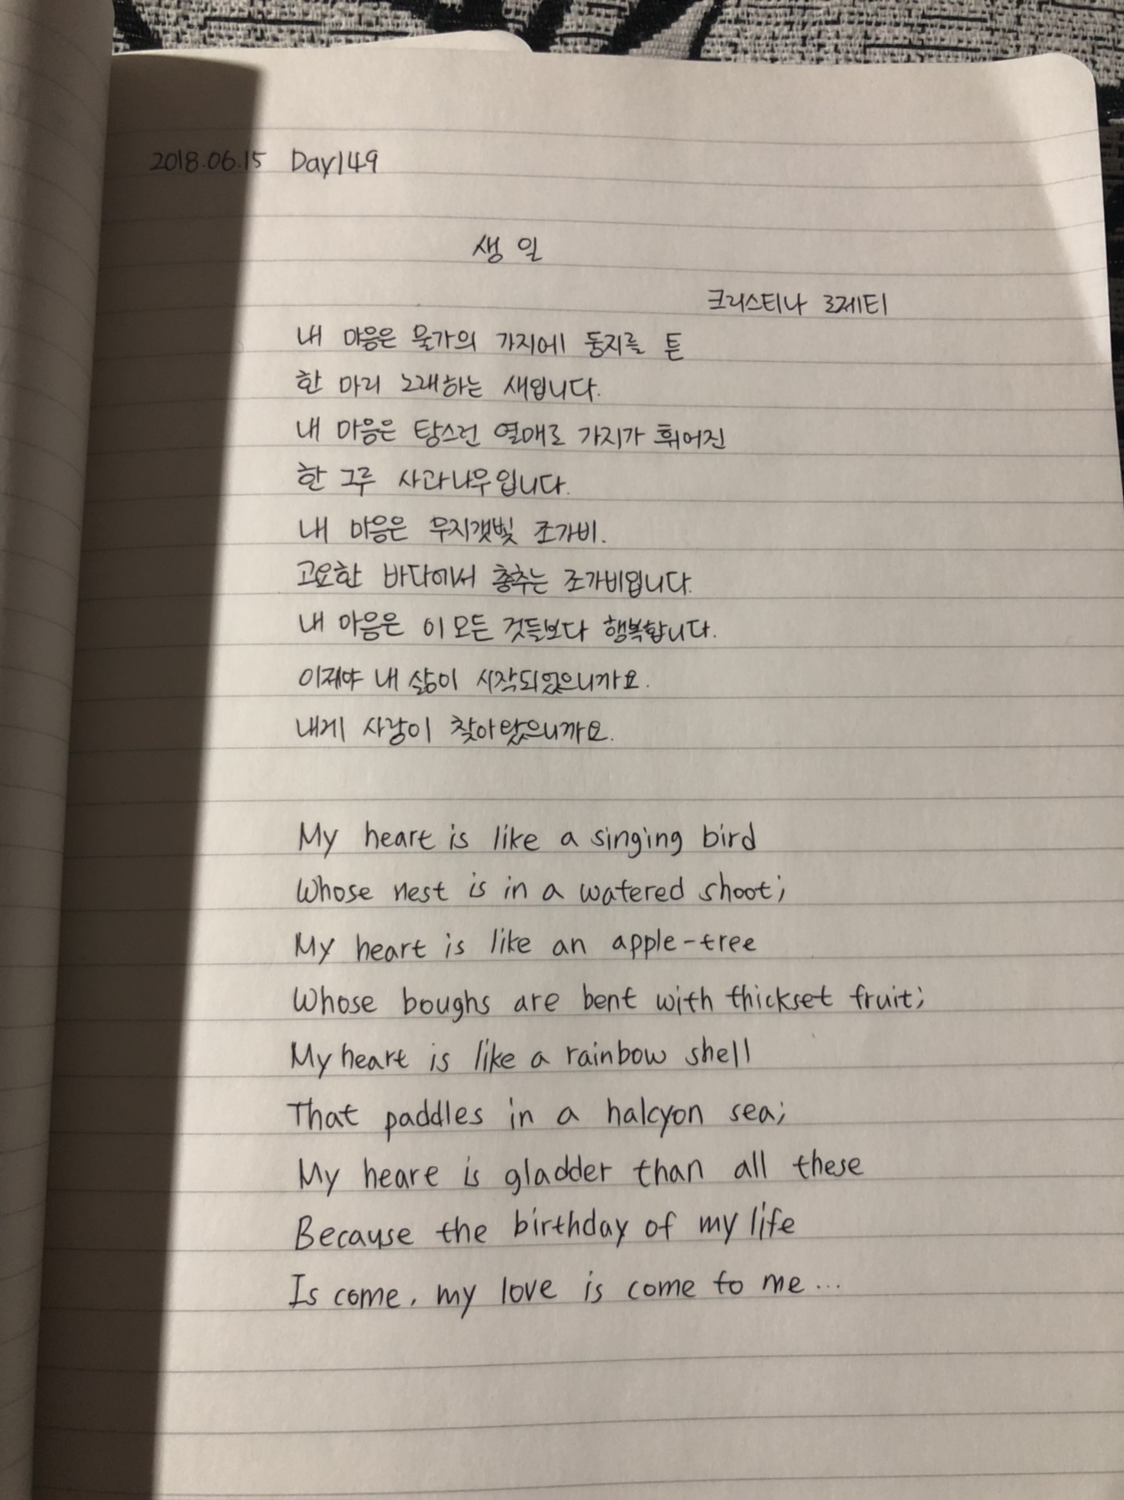 2018.06.15 Day149
생일
크리스티나 로제티
내 마음은 물가의 가지에 둥지를 튼
한 마리 노래하는 새입니다.
내 마음은 탐스런 열매로 가지가 휘어진
한 그루 사과나무입니다.
내 마음은 무지갯빛 조가비.
고요한 바다에서 춤추는 조가비입니다.
내 마음은 이 모든 것들보다 행복합니다.
이제야 내 삶이 시작되었으니까요.
내게 사랑이 찾아왔으니까요.
My heart is like a singing bird
Whose nest is in a watered shoot;
My heart is like an apple-tree
Whose boughs are bent with thickset fruit;
My heart is like a rainbow shell
That paddles in a halcyon sea;
My heare is gladder than all these
Because the birthday of my life
Is come, my love is come to me...